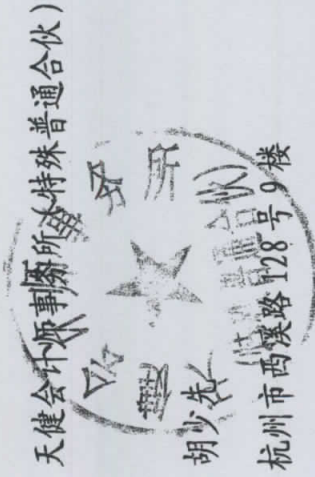 天健会计师事务所(特殊普通合伙)
胡少先
杭州市西溪路128号9楼